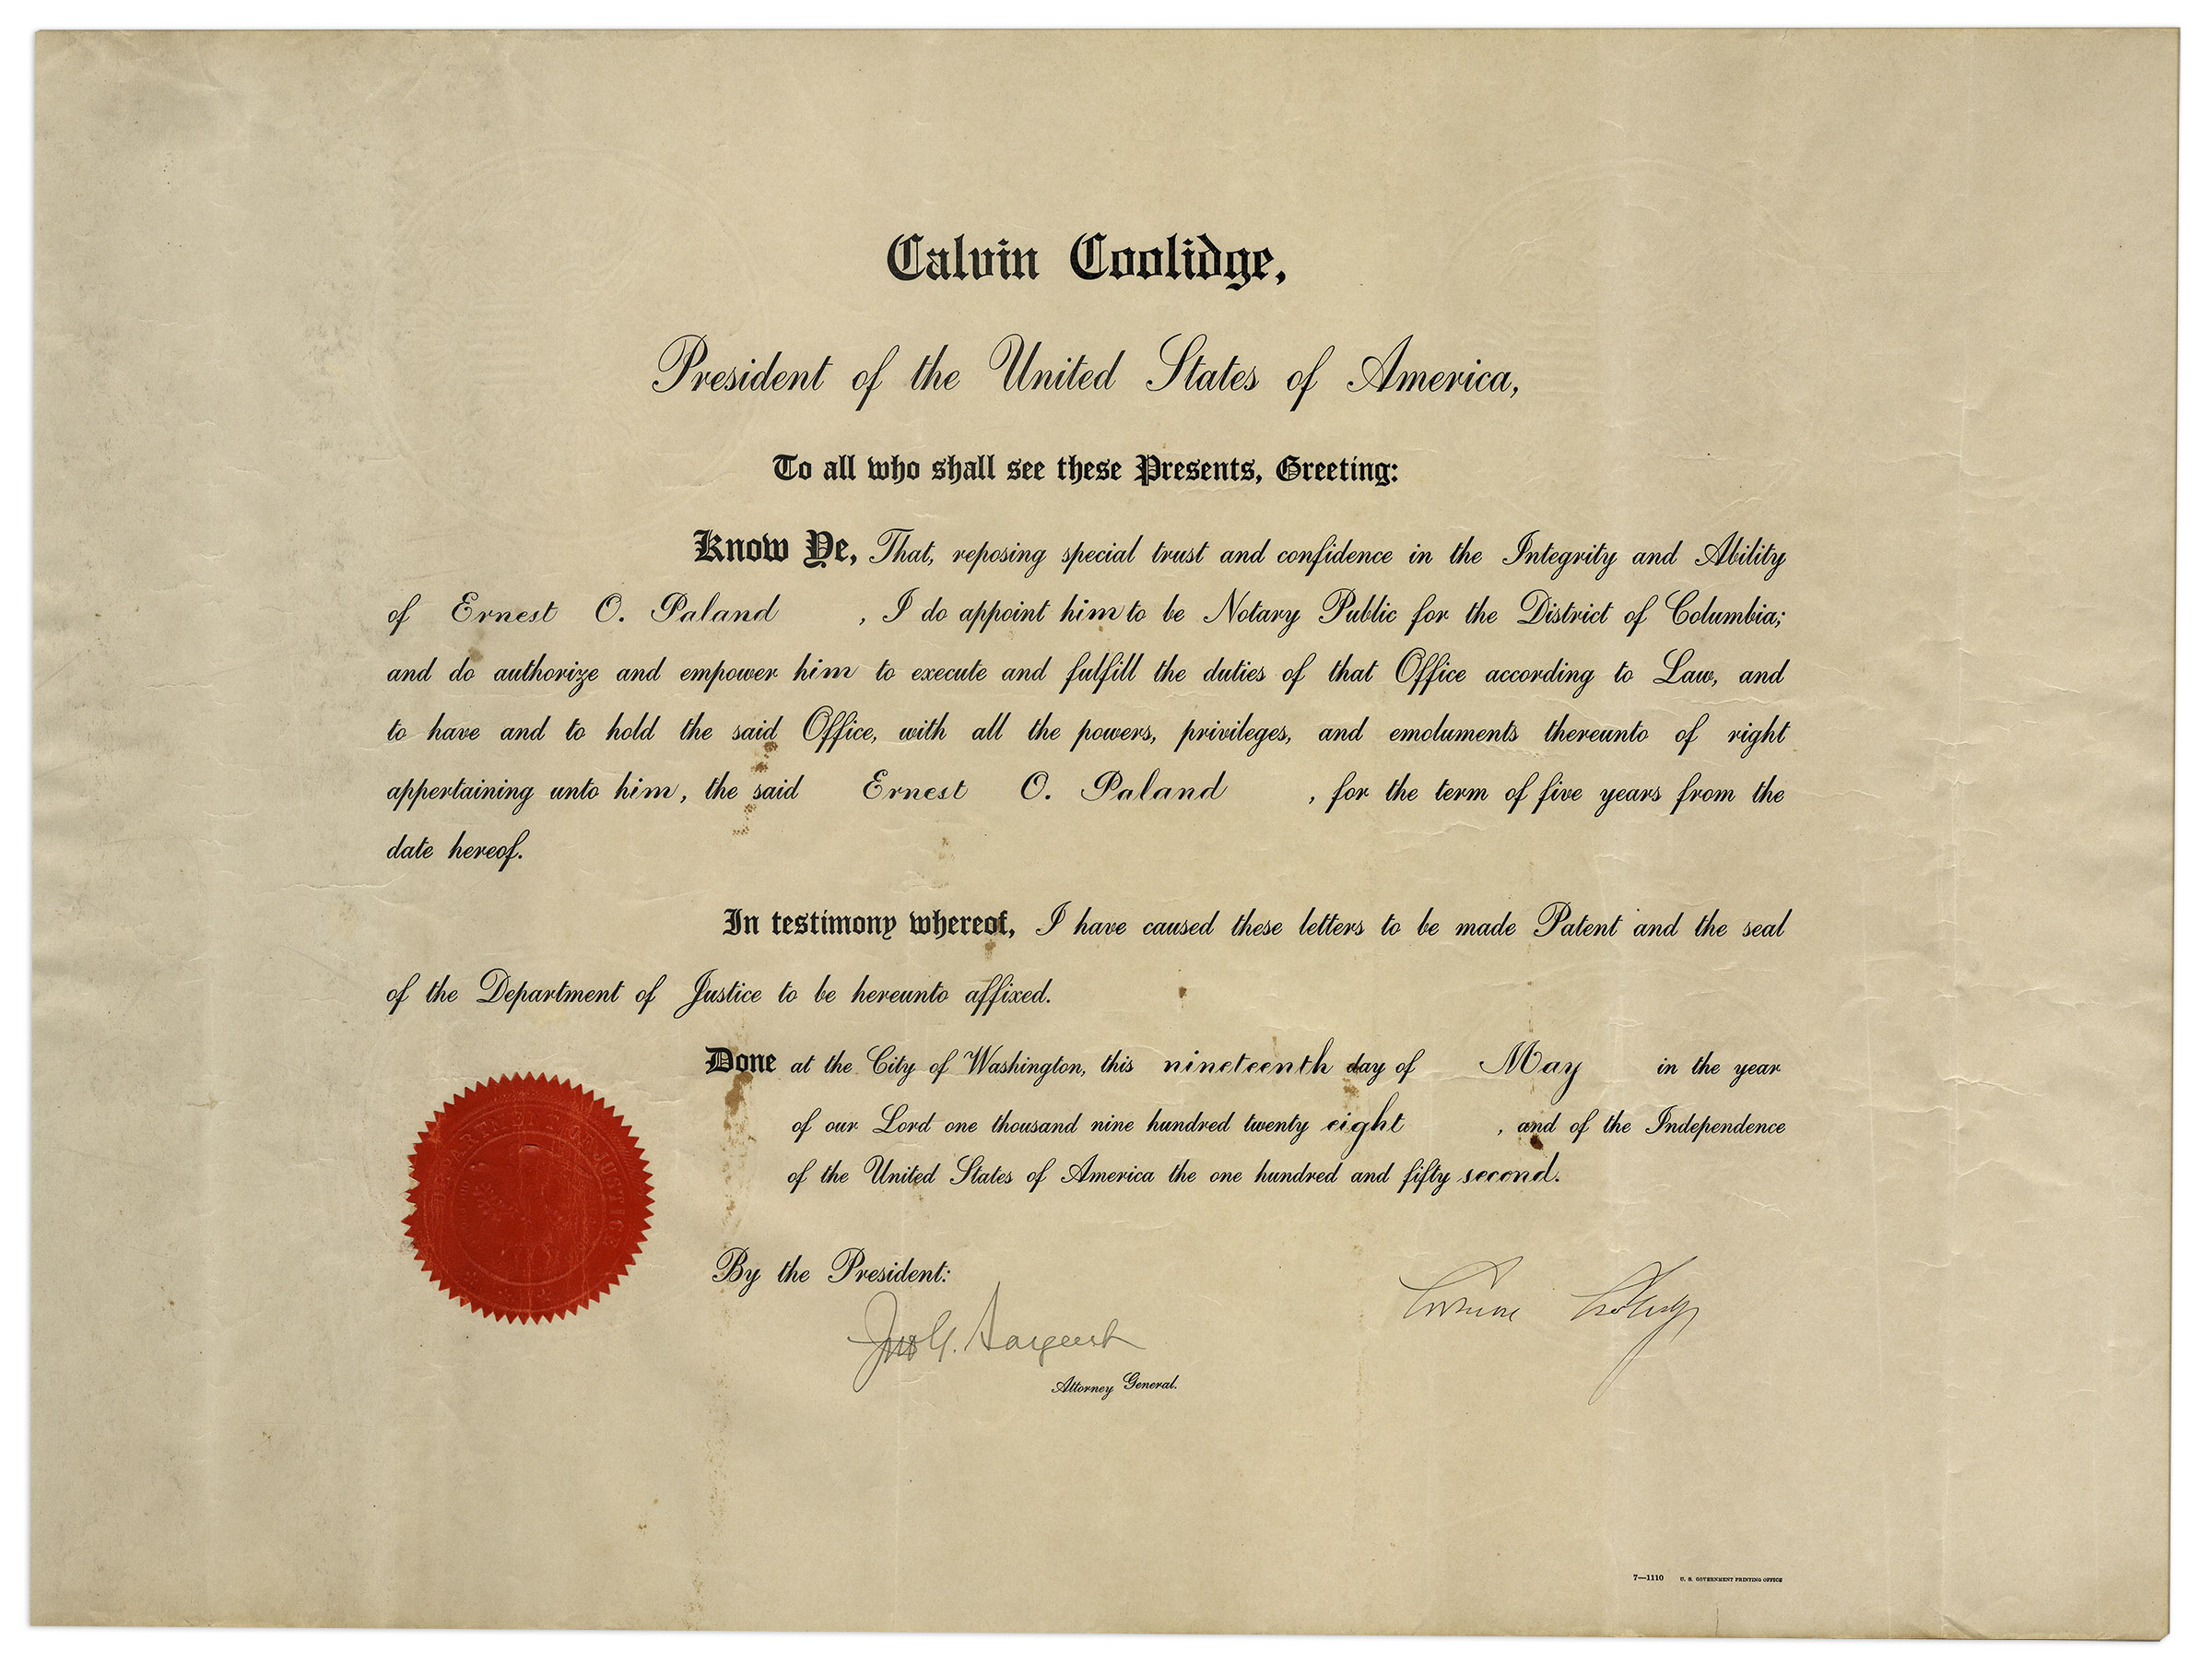 Calvin Coolidge,
President of the United States of America,
To all who shall see these Presents, Greeting:
Know Ye, That, reposing special trust and confidence in the Integrity and Ability
of Ernest O. Paland , I do appoint him to be Notary Public for the District of Columbia;
and do authorize and empower him to execute and fulfill the duties of that Office according to Law, and
to have and to hold the said Office, with all the powers, privileges, and emoluments thereunto of right
appertaining unto him, the said Ernest O. Paland , for the term of five years from the
date hereof.
In testimony whereof, I have caused these letters to be made Patent and the seal
of the Department of Justice to be hereunto affixed.
Done at the City of Washington, this nineteenth day of May in the year
of our Lord one thousand nine hundred twenty eight , and of the Independence
of the United States of America the one hundred and fifty second.
By the President:
Calvin Coolidge
Jno G. Sargent
Attorney General.
7—1110 U. S. GOVERNMENT PRINTING OFFICE